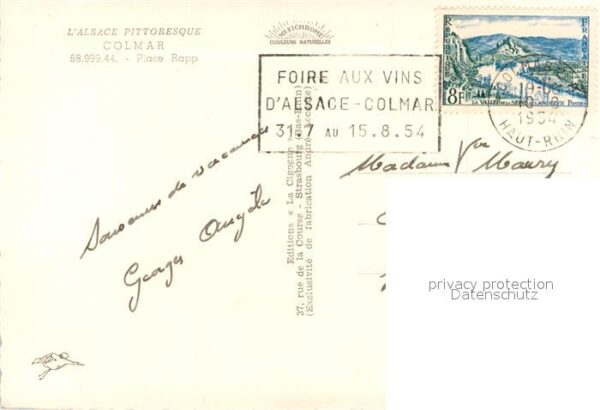 L'ALSACE PITTORESQUE
COLMAR
68.999.44. - Place Rapp
MEXICHROME
COULEURS NATURELLES
FOIRE AUX VINS
D'ALSACE-COLMAR
31.7 AU 15.8.54
RF
FRANCE
8F
LA VALLÉE DE LA SEINE AUX ANDELYS
POSTES
COLMAR
1954
HAUT-RHIN
Souvenir de vacances
Georges Angèle
Editions « La Cigogne »
37, rue de la Course - Strasbourg (Bas-Rhin)
(Exclusivité de fabrication André
Madame Vve Maury
privacy protection
Datenschutz